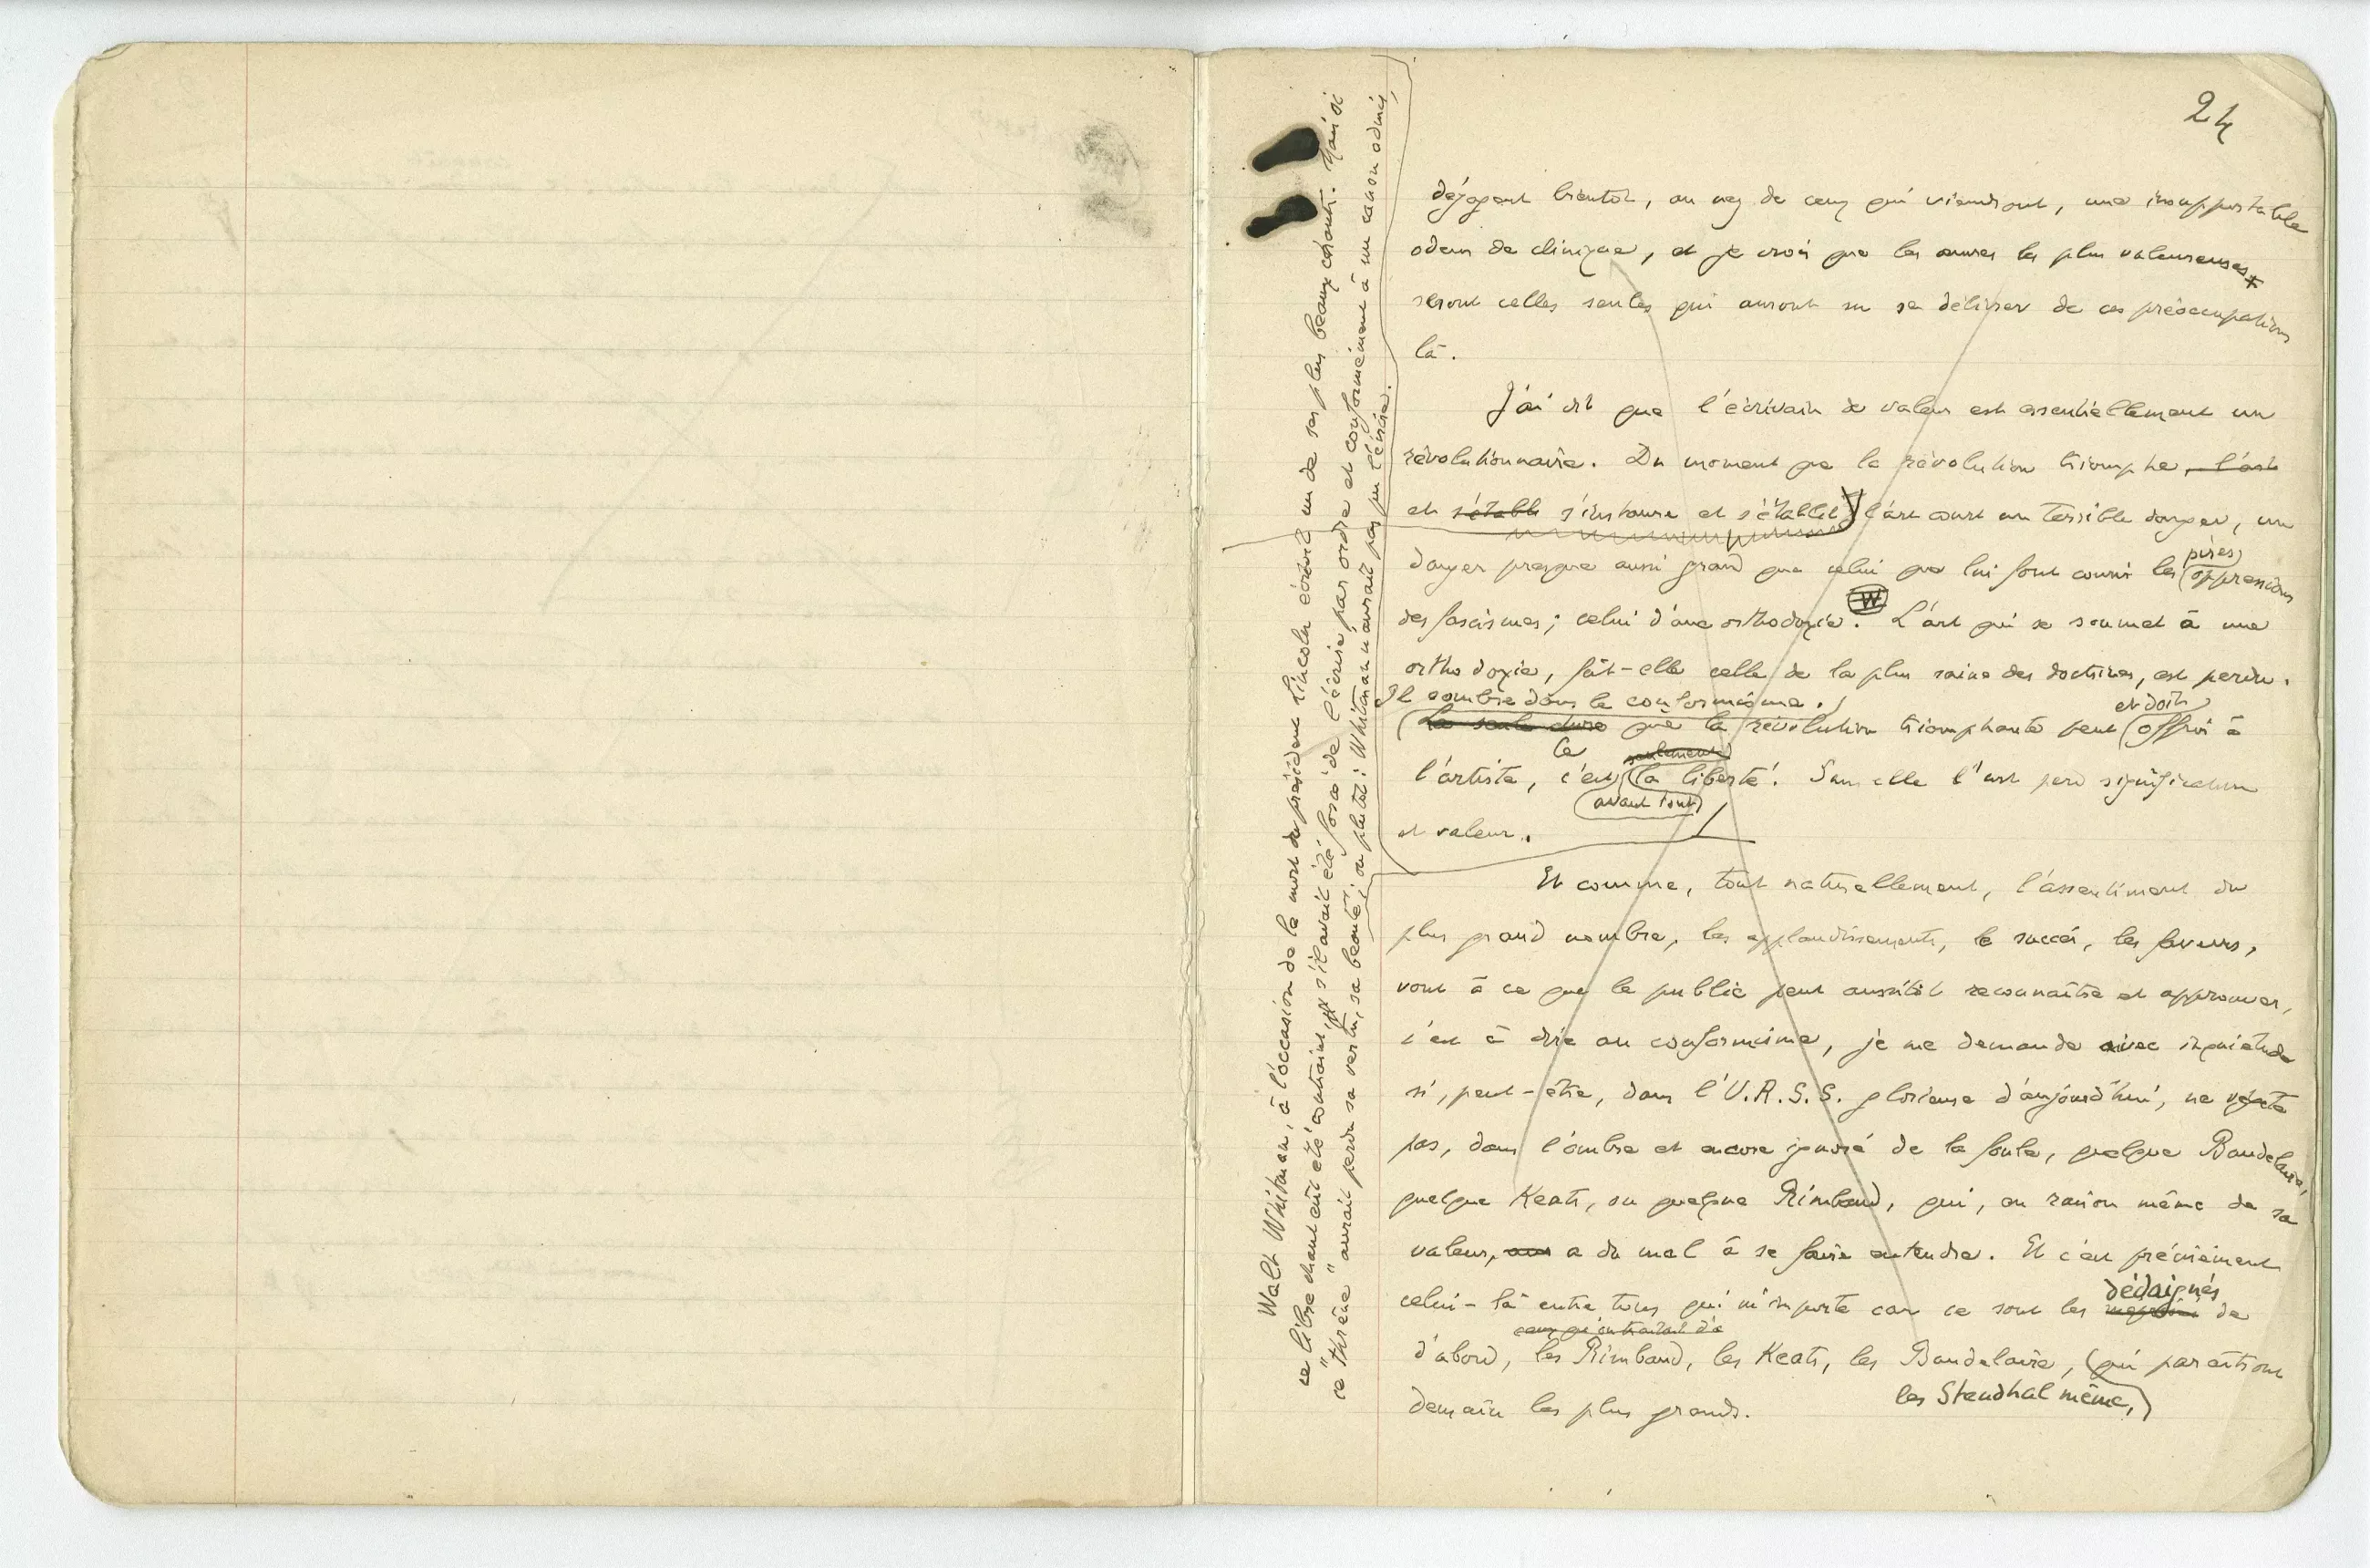 24
dégagent bientôt, au nez de ceux qui viendront, une insupportable
odeur de clinique, et je crois que les œuvres les plus valeureuses +
seront celles seules qui auront su se délivrer de ces préoccupations
là.
J'ai dit que l'écrivain de valeur est essentiellement un
révolutionnaire. Du moment que la révolution triomphe, l'art
et s'établi s'instaure et s'établit, l'art court un terrible danger, un
pires
danger presque aussi grand que celui que lui font courir les oppressions
W
des fascismes ; celui d'une orthodoxie. L'art qui se soumet à une
orthodoxie, fût-elle celle de la plus saine des doctrines, est perdu.
Il sombre dans le conformisme.
et doit
La seule chose que la révolution triomphante peut offrir à
Ce seulement
l'artiste, c'est la liberté. Sans elle l'art perd signification
avant tout
et valeur.
Et comme, tout naturellement, l'assentiment du
plus grand nombre, les applaudissements, le succès, les faveurs,
vont à ce que le public peut aussitôt reconnaître et approuver,
c'est à dire au conformisme, je me demande avec inquiétude
si, peut-être, dans l'U.R.S.S. glorieuse d'aujourd'hui, ne végète
pas, dans l'ombre et encore ignoré de la foule, quelque Baudelaire,
quelque Keats, ou quelque Rimbaud, qui, en raison même de sa
valeur, a du mal à se faire entendre. Et c'est précisément
dédaignés
celui-là entre tous qui m'importe car ce sont les de
d'abord, les Rimbaud, les Keats, les Baudelaire, qui paraîtront
les Stendhal même,
demain les plus grands.
Walt Whitman, à l'occasion de la mort du président Lincoln écrivit un de ses plus beaux chants. Mais si
ce libre chant eût été contraint, s'il avait été forcé de l'écrire par ordre et conformément à un canon admis,
ce "thrène" aurait perdu sa vertu, sa beauté ; ou plutôt : Whitman n'aurait pas pu l'écrire.